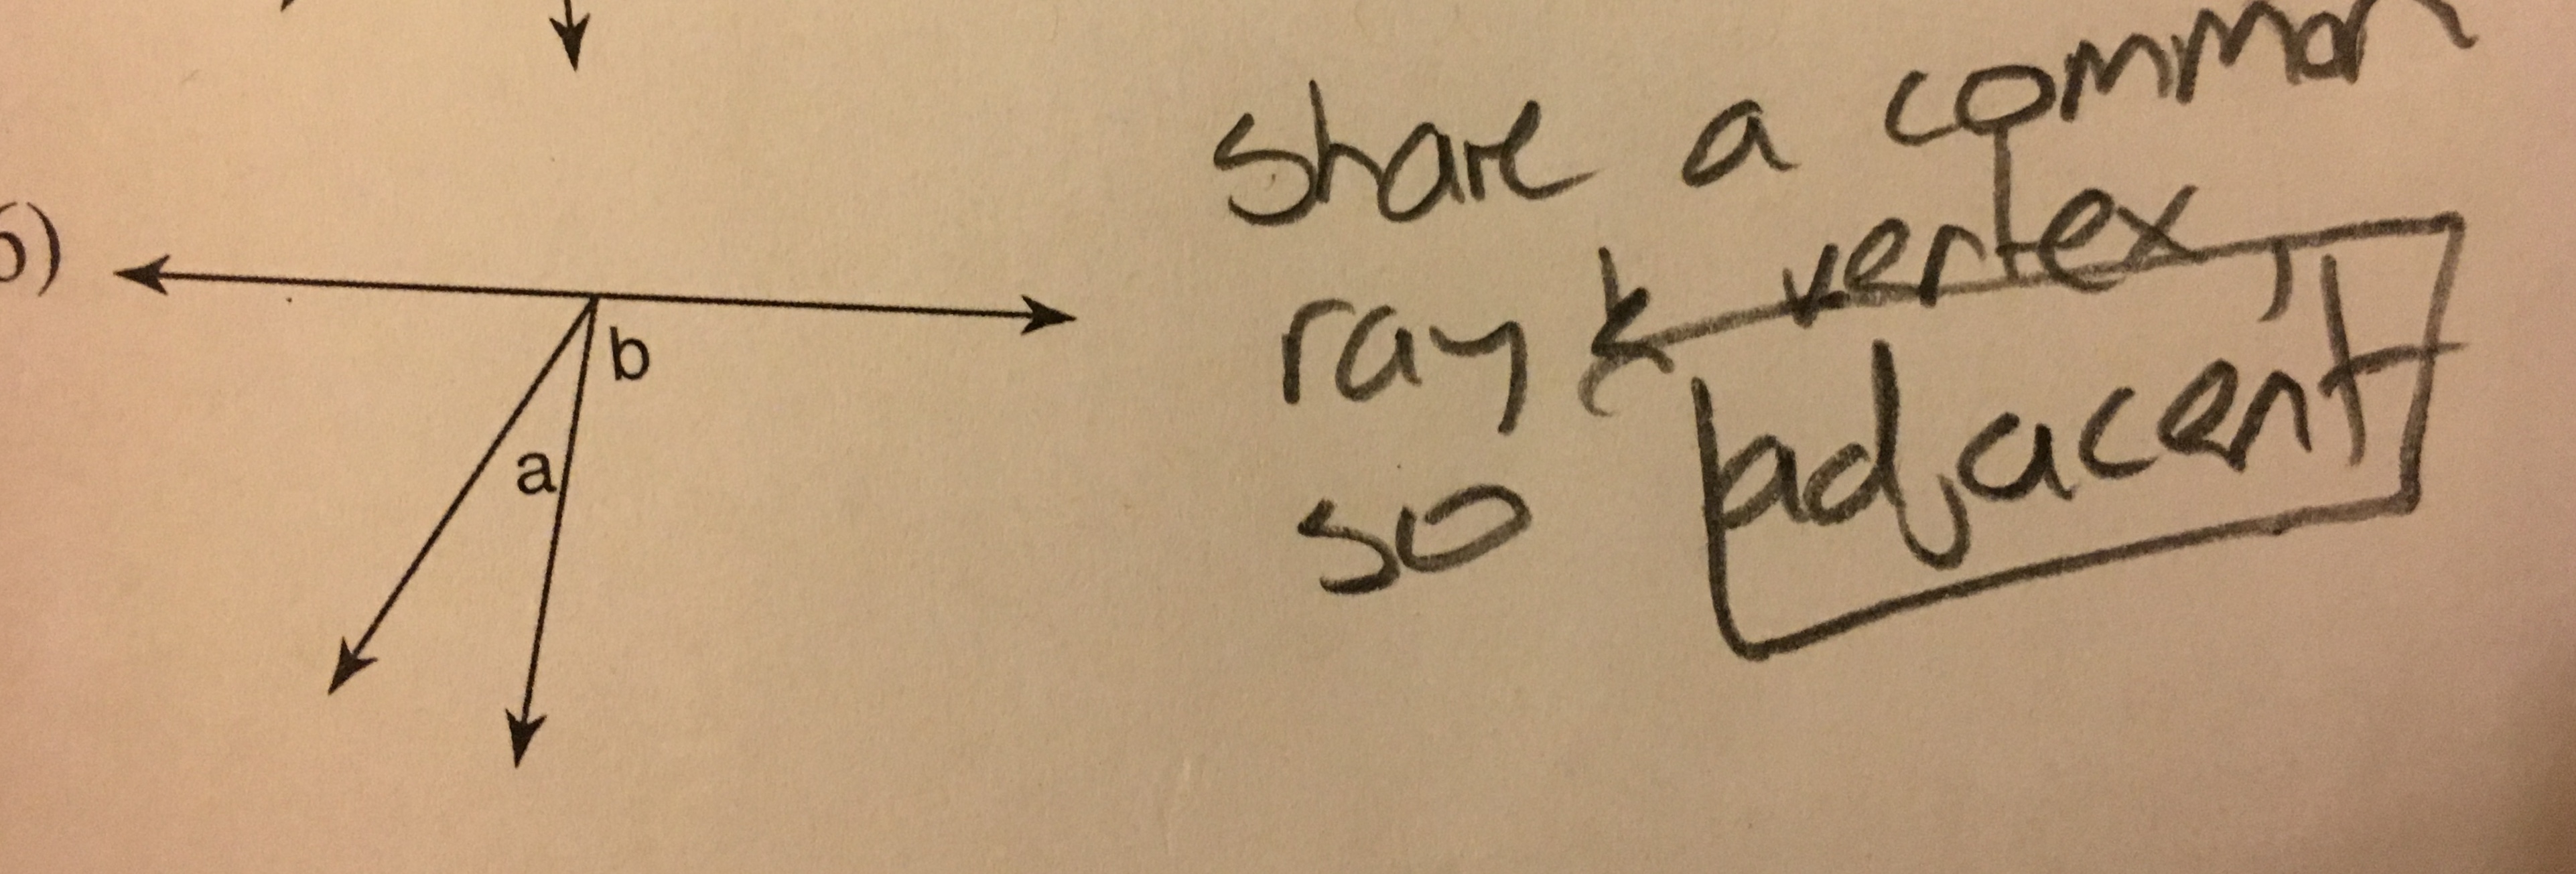 share a common
6)
ray & vertex,
b
a
so adjacent